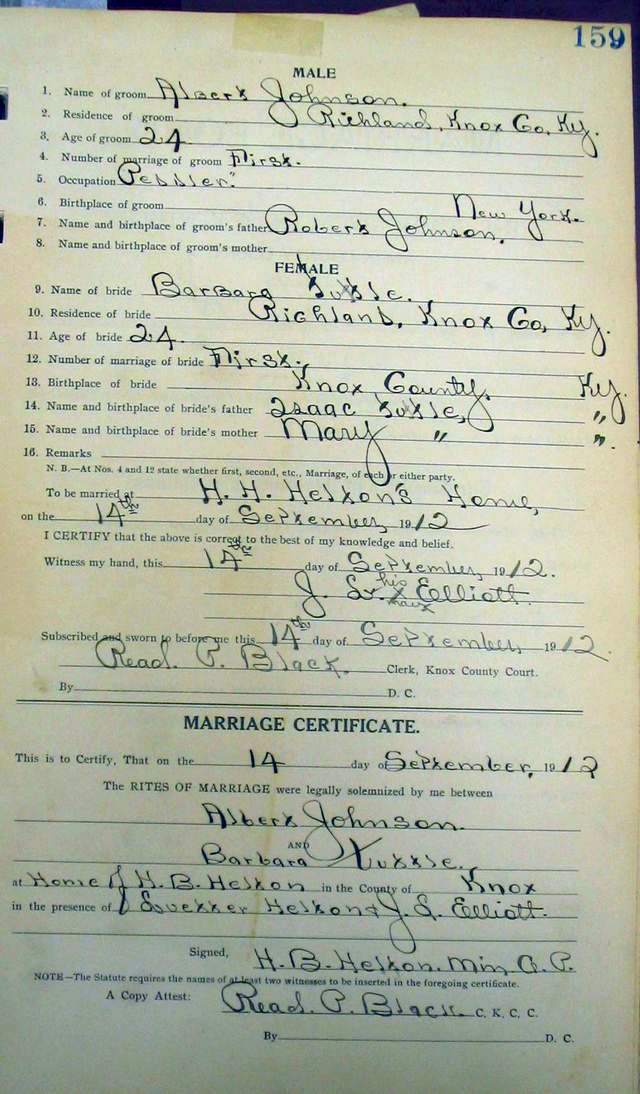 159
MALE
1. Name of groom Albert Johnson.
2. Residence of groom Richland, Knox Co, Ky.
3. Age of groom 24
4. Number of marriage of groom First.
5. Occupation Peddler.
6. Birthplace of groom New York.
7. Name and birthplace of groom's father Robert Johnson.
8. Name and birthplace of groom's mother
FEMALE
9. Name of bride Barbara Tuttle.
10. Residence of bride Richland, Knox Co, Ky.
11. Age of bride 24.
12. Number of marriage of bride First.
13. Birthplace of bride Knox County, Ky.
14. Name and birthplace of bride's father Isaac Tuttle, "
15. Name and birthplace of bride's mother Mary " ".
16. Remarks
N. B.—At Nos. 4 and 12 state whether first, second, etc., Marriage, of each or either party.
To be married at H. H. Helton's Home,
on the 14th day of September, 1912
I CERTIFY that the above is correct to the best of my knowledge and belief.
Witness my hand, this 14 day of September, 1912.
J. his x Elliott.
mark
Subscribed and sworn to before me this 14th day of September, 1912.
Read. P. Black. Clerk, Knox County Court.
By D. C.
MARRIAGE CERTIFICATE.
This is to Certify, That on the 14 day of September, 1912
The RITES OF MARRIAGE were legally solemnized by me between
Albert Johnson.
AND
Barbara Tuttle.
at Home of H. B. Helton in the County of Knox
in the presence of Helton & J. L. Elliott.
Signed, H. B. Helton. Min.
NOTE—The Statute requires the names of at least two witnesses to be inserted in the foregoing certificate.
A Copy Attest: Read. P. Black C. K. C. C.
By D. C.